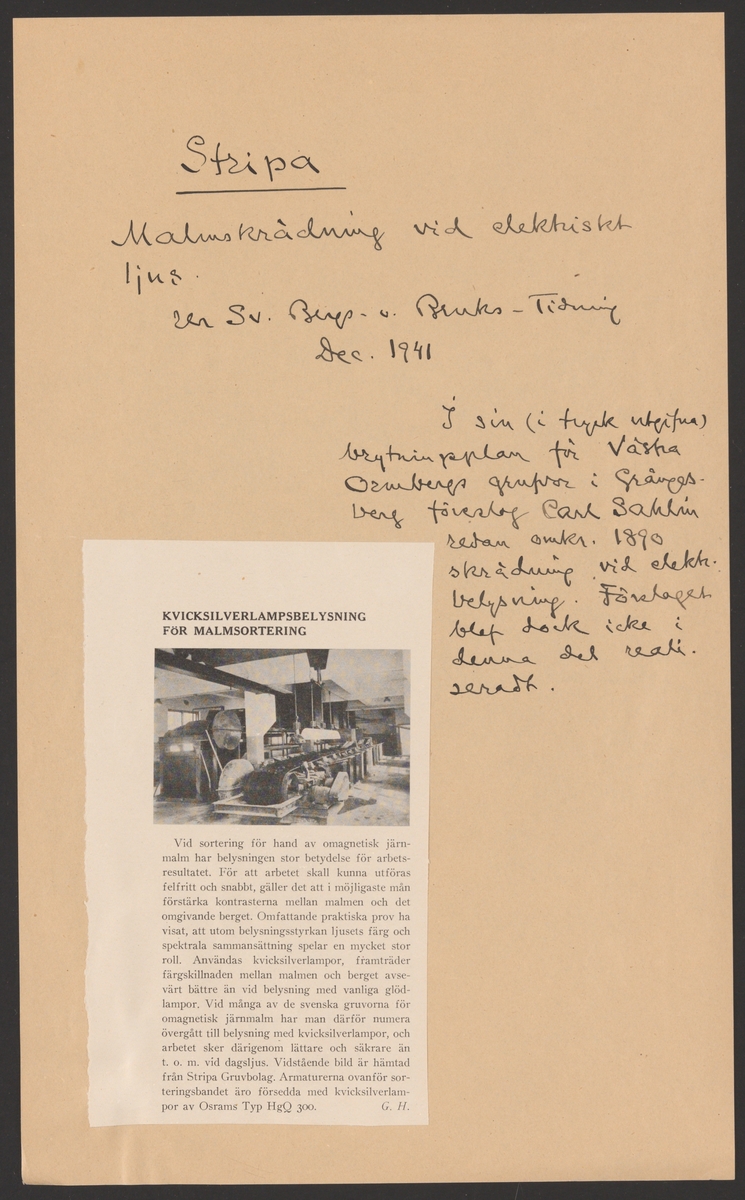 Stripa
Malmskrädning vid elektriskt
ljus.
Sv. Bergs- o. Bruks-Tidning
Dec. 1941
I sin (i tryck utgifna)
brytningsplan för Västra
Ormbergs grufvor i Gränges-
berg föreslog Carl Sahlin
redan omkr. 1890
skrädning vid elektr.
belysning. Förslaget
blef dock icke i
denna del reali-
seradt.
KVICKSILVERLAMPSBELYSNING
FÖR MALMSORTERING
Vid sortering för hand av omagnetisk järn-
malm har belysningen stor betydelse för arbets-
resultatet. För att arbetet skall kunna utföras
felfritt och snabbt, gäller det att i möjligaste mån
förstärka kontrasterna mellan malmen och det
omgivande berget. Omfattande praktiska prov ha
visat, att utom belysningsstyrkan ljusets färg och
spektrala sammansättning spelar en mycket stor
roll. Användas kvicksilverlampor, framträder
färgskillnaden mellan malmen och berget avse-
värt bättre än vid belysning med vanliga glöd-
lampor. Vid många av de svenska gruvorna för
omagnetisk järnmalm har man därför numera
övergått till belysning med kvicksilverlampor, och
arbetet sker därigenom lättare och säkrare än
t. o. m. vid dagsljus. Vidstående bild är hämtad
från Stripa Gruvbolag. Armaturerna ovanför sor-
teringsbandet äro försedda med kvicksilverlam-
por av Osrams Typ HgQ 300. G. H.